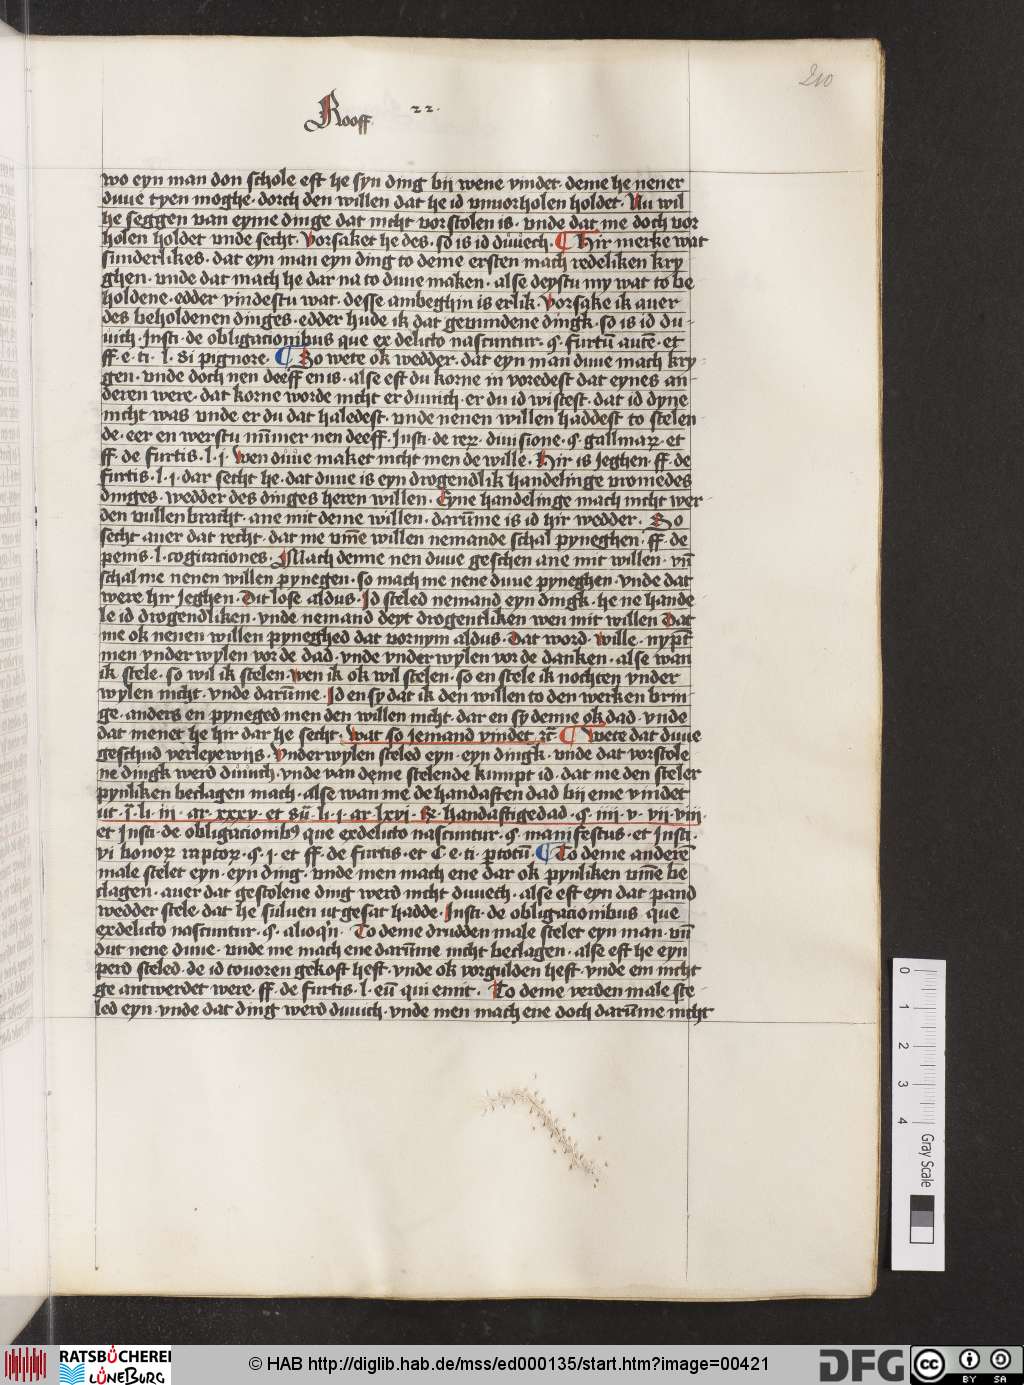 210
Rooff 22
wo eyn man don schole eft he syn ding bij wene vindet · deme he nener
duue tyen moghe · dorch den willen dat he id vnuorholen holdet · Nu wil
he seggen van eyme dinge dat nicht vorstolen is · vnde dat me doch vor
holen holdet vnde secht · Vorsaket he des · so is id duuech · ¶ Hir merke wat
sunderlikes · dat eyn man eyn ding to deme ersten mach redeliken kry
ghen · vnde dat mach he dar na to duue maken · alse deystu my wat to be
holdene · edder vindestu wat · desse ambeghin is erlik · Vorsake ik auer
des beholdenen dinges · edder hude ik dat gevundene dingk · so is id du-
uich · Insti · de obligacionibus que ex delicto nascuntur · §. furtū autē · et
ff · e · ti · l · Si pignore · ¶ So wete ok wedder · dat eyn man duue mach kry-
gen · vnde doch nen deeff enis · alse eft du korne in voredest dat eynes an-
deren were · dat korne worde nicht er duuich · er du id wistest · dat id dyne
nicht was vnde er du dat haledest · vnde nenen willen haddest to stelen
de · eer en werstu nūmer nen deeff · Insti · de reꝝ · diuisione · §. gallinaꝝ · et
ff · de furtis · l · j · Wen duue maket nicht men de wille · Hir is jeghen · ff · de
furtis · l · j · dar secht he · dat duue is eyn drogendlik handelinge vromedes
dinges · wedder des dinges heren willen · Eyne handelinge mach nicht wer
den vullenbracht · ane mit deme willen · darūme is id hir wedder · So
secht auer dat recht · dat me vm̄e willen nemande schal pyneghen · ff · de
penis · l · cogitaciones · Mach denne nen duue geschen ane mit willen · vn̄
schal me nenen willen pynegen · so mach me nene duue pyneghen · vnde dat
were hir jeghen · Dit lose aldus · Id steled nemand eyn dingk · he ne hande
le id drogendliken · vnde nemand deyt drogentliken wen mit willen Dat
me ok nenen willen pyneghed dat vornym aldus · Dat word · Wille · nympt
men vnder wylen vor de dad · vnde vnder wylen vor de danken · alse wan
ik stele · so wil ik stelen · wen ik ok wil stelen · so en stele ik nochten vnder
wylen nicht · vnde darūme · Id en sy dat ik den willen to den werken brin-
ge · anders en pyneged men den willen nicht · dar en sy deme ok dad · vnde
dat menet he hir dar he secht · Wat so jemand vindet ꝛc̄ ¶ Wete dat duue
geschud verleyewijs · Vnder wylen steled eyn · eyn dingk · vnde dat vorstole
ne dingk werd duuich · vnde van deme stelende kumpt id · dat me den steler
pynliken beclagen mach · alse wan me de handaften dad bij eme vindet
ut · j̄ · li · iii · ar · xxxv · et sūi · li · j · ar · lxvi · Eꝛ handaftige dad · §. iiii · v · vii · viii ·
et Insti · de obligacionibꝰ que ex delicto nascuntur · §. manifestus · et Insti ·
vi bonoꝝ raptoꝝ · §. j · et ff · de furtis · et C · e · ti · ꝑ totū · ¶ To deme anderē
male stelet eyn · eyn ding · vnde men mach ene dar ok pynliken vm̄e be
clagen · auer dat gestolene ding werd nicht duuech · alse eft eyn dat pand
wedder stele · dat he suluen utgesat hadde · Insti · de obligacionibus que
ex delicto nascuntur · §. alioqn̄ · To deme drudden male stelet eyn man · vn̄
dut nene duue · vnde me mach ene darūme nicht beclagen · alse eft he eyn
perd steled · de id touoren gekoft heft · vnde ok vorgulden heft · vnde em nicht
ge antwerdet were · ff · de furtis · l · eū qui emit · To deme verden male ste-
led eyn · vnde dat ding werd duuich · vnde men mach ene doch darūme nicht
0
1
2
3
4
Gray Scale
RATSBÜCHEREI
LÜNEBURG
© HAB http://diglib.hab.de/mss/ed000135/start.htm?image=00421
DFG
cc
BY SA